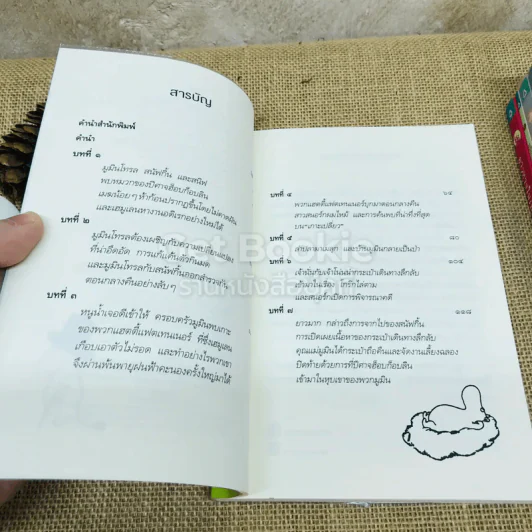 สารบัญ
คำนำสำนักพิมพ์
คำนำ
บทที่ ๑
มูมินโทรล สนัฟกิ้น และสนิฟ
พบหมวกของปีศาจฮ็อบก็อบลิน
เมฆน้อยๆ ห้าก้อนปรากฏขึ้นโดยไม่คาดฝัน
และเฮมูเลนหางานอดิเรกอย่างใหม่ได้
บทที่ ๒
มูมินโทรลต้องเผชิญกับความเปลี่ยนแปลง
ที่น่าอึดอัด การแก้แค้นตัวกินมด
และมูมินโทรลกับสนัฟกิ้นออกสำรวจ
ตอนกลางคืนอย่างลับๆ
บทที่ ๓
หนูน้ำเจอดีเข้าให้ ครอบครัวมูมินพบเกาะ
ของพวกแฮตตี้แฟตเทนเนอร์ ที่ซึ่งเฮมูเลน
เกือบเอาตัวไม่รอด และทำอย่างไรพวกเขา
จึงผ่านพ้นพายุฝนฟ้าคะนองครั้งใหญ่มาได้
บทที่ ๔ ๖๔
พวกแฮตตี้แฟตเทนเนอร์บุกมาตอนกลางคืน
สาวสนอร์กผมไหม้ และการค้นพบที่น่าทึ่งที่สุด
บน"เกาะเปลี่ยว"
บทที่ ๕ ๘๐
และบ้านมูมินกลายเป็นป่า
บทที่ ๖ ๑๐๔
กระเป๋าเดินทางลึกลับ
และสนอร์กเปิดการพิจารณาคดี
บทที่ ๗ ๑๑๘
ยาวมาก กล่าวถึงการจากไปของสนัฟกิ้น
การเปิดเผยเนื้อหาของกระเป๋าเดินทางลึกลับ
คุณแม่มูมินได้กระเป๋าถือคืนและจัดงานเลี้ยงฉลอง
ปิดท้ายด้วยการที่ปีศาจฮ็อบก็อบลิน
เข้ามาในหุบเขาของพวกมูมิน
Get Bookie
ร้านหนังสือ